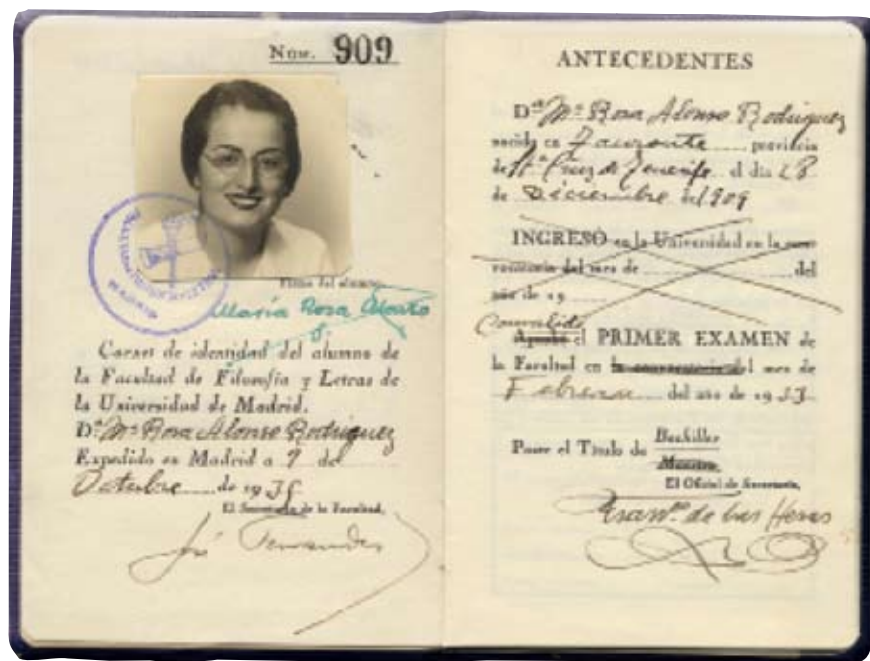 Núm. 909
Firma del alumno,
María Rosa Alonso
Carnet de identidad del alumno de
la Facultad de Filosofía y Letras de
la Universidad de Madrid.
D.ª Mª Rosa Alonso Rodríguez
Expedido en Madrid a 9 de
Octubre de 1935
El Secretario de la Facultad,
ANTECEDENTES
D.ª Mª Rosa Alonso Rodriguez
nacido en Tacoronte provincia
de Stª Cruz de Tenerife el día 28
de Diciembre del 909
INGRESÓ en la Universidad en la con-
vocatoria del mes de del
año de 19
Convalidó
Aprobó el PRIMER EXAMEN de
la Facultad en la convocatoria del mes de
Febrero del año de 1933
Posee el Título de Bachiller
Maestro
El Oficial de Secretaría,
de las Heras